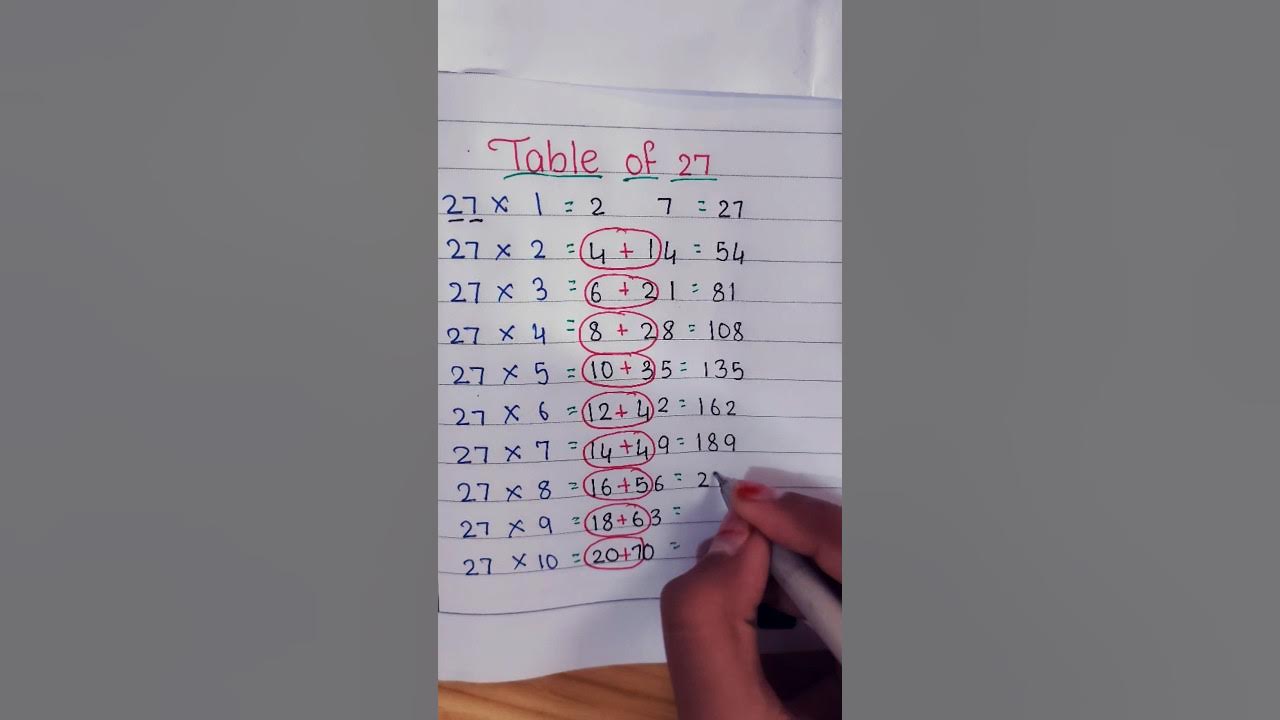 Table of 27
27 × 1 = 2 7 = 27
27 × 2 = 4 + 14 = 54
27 × 3 = 6 + 21 = 81
27 × 4 = 8 + 28 = 108
27 × 5 = 10+35 = 135
27 × 6 = 12+42 = 162
27 × 7 = 14+49 = 189
27 × 8 = 16+56 = 2
27 × 9 = 18+63 =
27 × 10 = 20+70 =